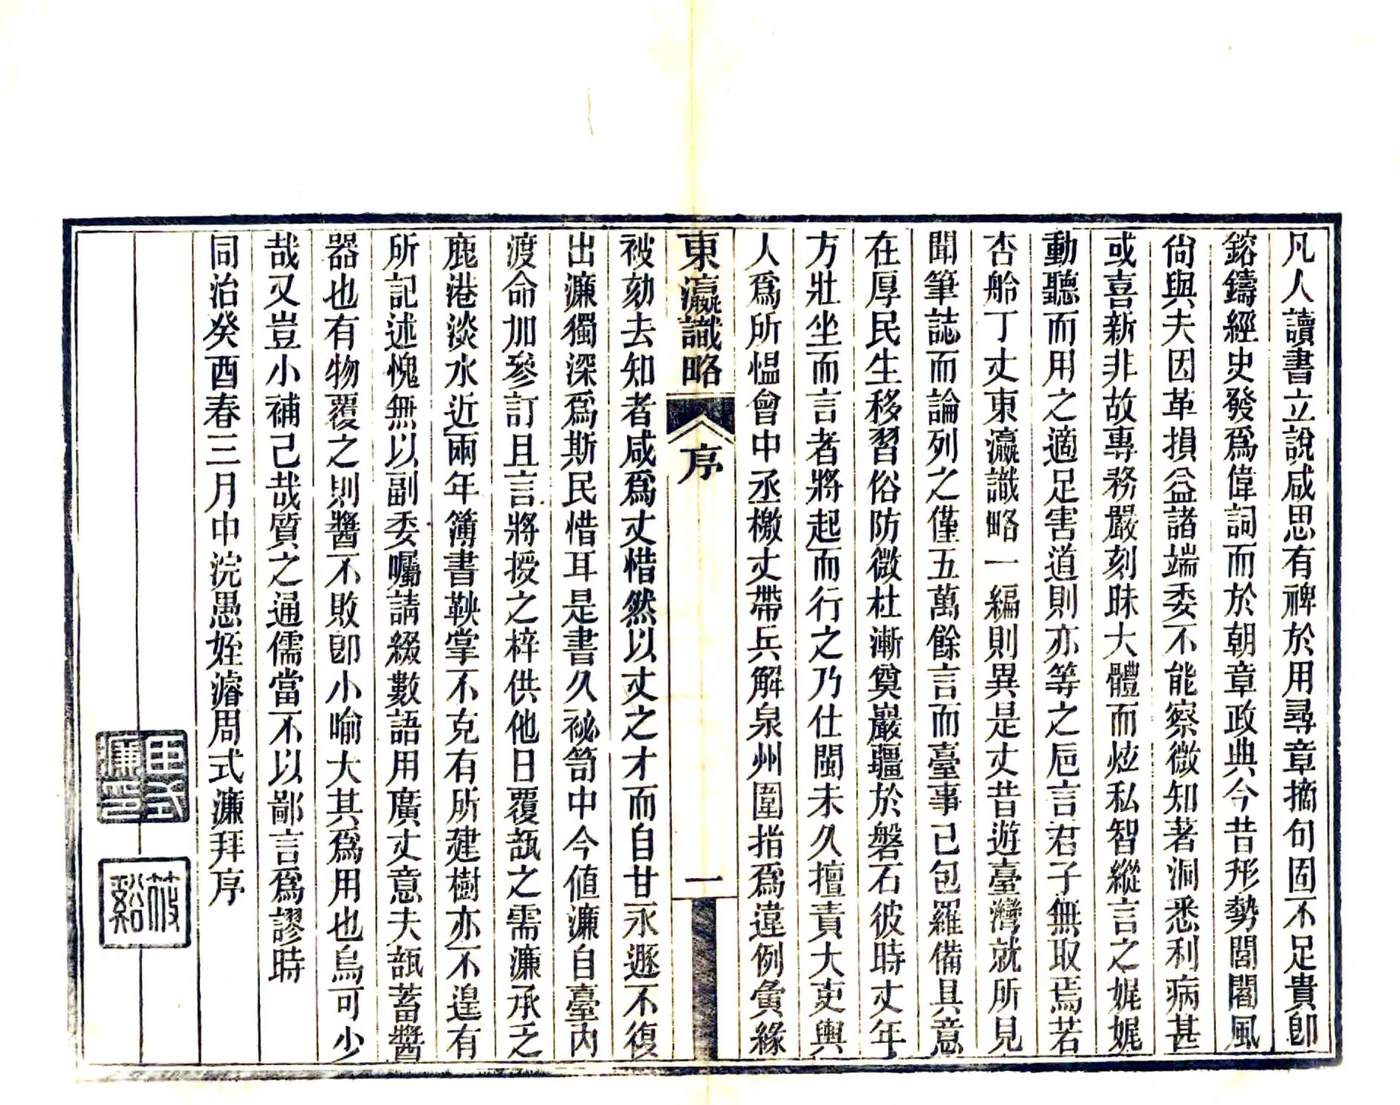 凡人讀書立說咸思有裨於用尋章摘句固不足貴卽
鎔鑄經史發爲偉詞而於朝章政典今昔形勢閭閻風
尙與夫因革損益諸端委不能察微知著洞悉利病甚
或喜新非故專務嚴刻昧大體而炫私智縱言之娓娓
動聽而用之適足害道則亦等之巵言君子無取焉若
杏舲丁丈東瀛識略一編則異是丈昔遊臺灣就所見
聞筆誌而論列之僅五萬餘言而臺事已包羅備具意
在厚民生移習俗防微杜漸奠巖疆於磐石彼時丈年
方壯坐而言者將起而行之乃仕閩未久擅責大吏輿
人爲所慍會中丞檄丈帶兵解泉州圍指爲違例夤緣
東瀛識略
序
一
被劾去知者咸爲丈惜然以丈之才而自甘永遯不復
出濂獨深爲斯民惜耳是書久祕笥中今値濂自臺內
渡命加參訂且言將授之梓供他日覆瓿之需濂承之
鹿港淡水近兩年簿書鞅掌不克有所建樹亦不遑有
所記述愧無以副委囑請綴數語用廣丈意夫瓿蓄醬
器也有物覆之則醬不敗卽小喻大其爲用也烏可少
哉又豈小補已哉質之通儒當不以鄙言爲謬時
同治癸酉春三月中浣愚姪濬周式濂拜序
周式濂印
筱谿